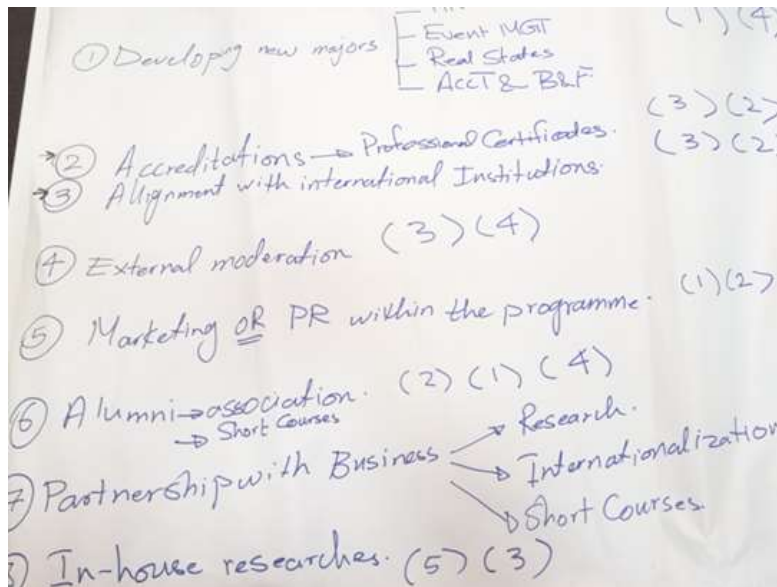 ① Developing new majors
Event MGT (1) (4)
Real States
AccT & B&F
→ ② Accreditations → Professional Certificates. (3) (2)
→ ③ Allignment with international Institutions. (3) (2
④ External moderation (3) (4)
⑤ Marketing OR PR within the programme. (1) (2)
⑥ Alumni → association. (2) (1) (4)
→ Short Courses
7) Partnership with Business → Research.
→ Internationalization
→ Short Courses.
) In-house researches. (5) (3)